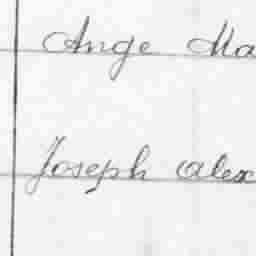 Ange Ma
Joseph Alex